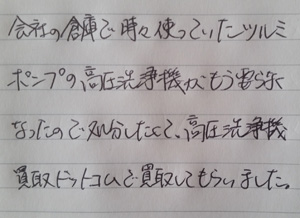 会社の倉庫で時々使っていたツルミ
ポンプの高圧洗浄機がもう要らなく
なったので処分したくて、高圧洗浄機
買取ドットコムで買取してもらいました。